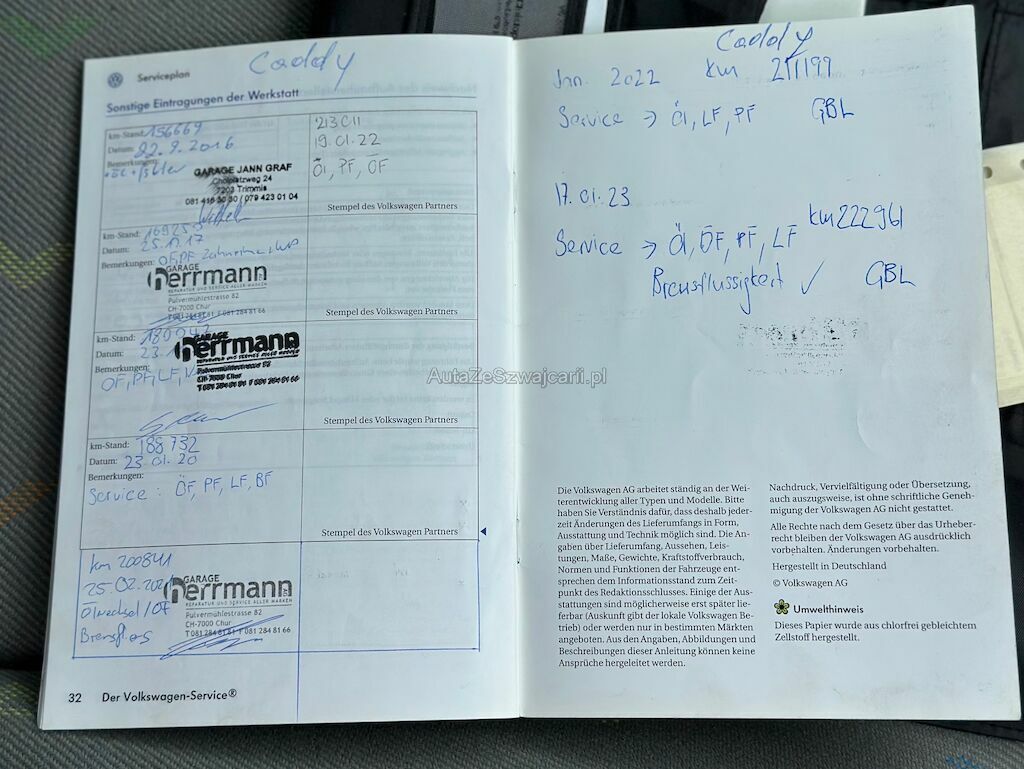 Caddy
Serviceplan
Sonstige Eintragungen der Werkstatt
km-Stand: 156669
Datum: 22.9.2016
Bemerkungen:
GARAGE JANN GRAF
Cholplatzweg 24
7203 Trimmis
081 416 30 30 / 079 423 01 04
213011
19.01.22
Öl, PF, ÖF
Stempel des Volkswagen Partners
km-Stand: 169253
Datum: 25.11.17
Bemerkungen: ÖF, PF Zahnriemen, WP
GARAGE
herrmann
REPARATUR UND SERVICE ALLER MARKEN
Pulvermühlestrasse 82
CH-7000 Chur
T 081 284 81 81 F 081 284 81 66
Stempel des Volkswagen Partners
km-Stand: 180042
Datum: 23.
Bemerkungen:
ÖF, PF, LF,
GARAGE
herrmann
REPARATUR UND SERVICE ALLER MARKEN
Pulvermühlestrasse 82
CH-7000 Chur
T 081 284 81 81 F 081 284 81 66
Stempel des Volkswagen Partners
km-Stand: 188732
Datum: 23.01.20
Bemerkungen:
Service: ÖF, PF, LF, BF
Stempel des Volkswagen Partners
km 200841
25.02.2021
Ölwechsel/ÖF
Bremsflüs
GARAGE
herrmann
REPARATUR UND SERVICE ALLER MARKEN
Pulvermühlestrasse 82
CH-7000 Chur
T 081 284 81 81 F 081 284 81 66
32 Der Volkswagen-Service®
Caddy
Jan. 2022 km 211199
Service → Öl, LF, PF GBL
17.01.23
km 222961
Service → Öl, ÖF, PF, LF
Bremsflüssigkeit ✓ GBL
AutaZeSzwajcarii.pl
Die Volkswagen AG arbeitet ständig an der Wei-
terentwicklung aller Typen und Modelle. Bitte
haben Sie Verständnis dafür, dass deshalb jeder-
zeit Änderungen des Lieferumfangs in Form,
Ausstattung und Technik möglich sind. Die An-
gaben über Lieferumfang, Aussehen, Leis-
tungen, Maße, Gewichte, Kraftstoffverbrauch,
Normen und Funktionen der Fahrzeuge ent-
sprechen dem Informationsstand zum Zeit-
punkt des Redaktionsschlusses. Einige der Aus-
stattungen sind möglicherweise erst später lie-
ferbar (Auskunft gibt der lokale Volkswagen Be-
trieb) oder werden nur in bestimmten Märkten
angeboten. Aus den Angaben, Abbildungen und
Beschreibungen dieser Anleitung können keine
Ansprüche hergeleitet werden.
Nachdruck, Vervielfältigung oder Übersetzung,
auch auszugsweise, ist ohne schriftliche Geneh-
migung der Volkswagen AG nicht gestattet.
Alle Rechte nach dem Gesetz über das Urheber-
recht bleiben der Volkswagen AG ausdrücklich
vorbehalten. Änderungen vorbehalten.
Hergestellt in Deutschland
© Volkswagen AG
Umwelthinweis
Dieses Papier wurde aus chlorfrei gebleichtem
Zellstoff hergestellt.